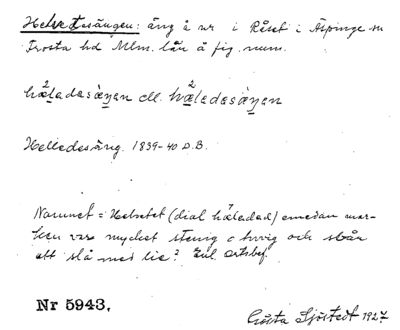 Helvetesängen: äng å nr i Råset i Äspinge sn
Frosta hd Mlm. län å fig. num.
hæ̀ladasæŋen ell. hæ̀ledasæŋen
Helledesäng. 1839-40 D.B.
Namnet = Helvetet (dial hæ̀ladad) emedan mar-
ken var mycket stenig o tuvig och svår
att slå med lie? Enl. ortsbef.
Nr 5943.
Gösta Sjöstedt 1927